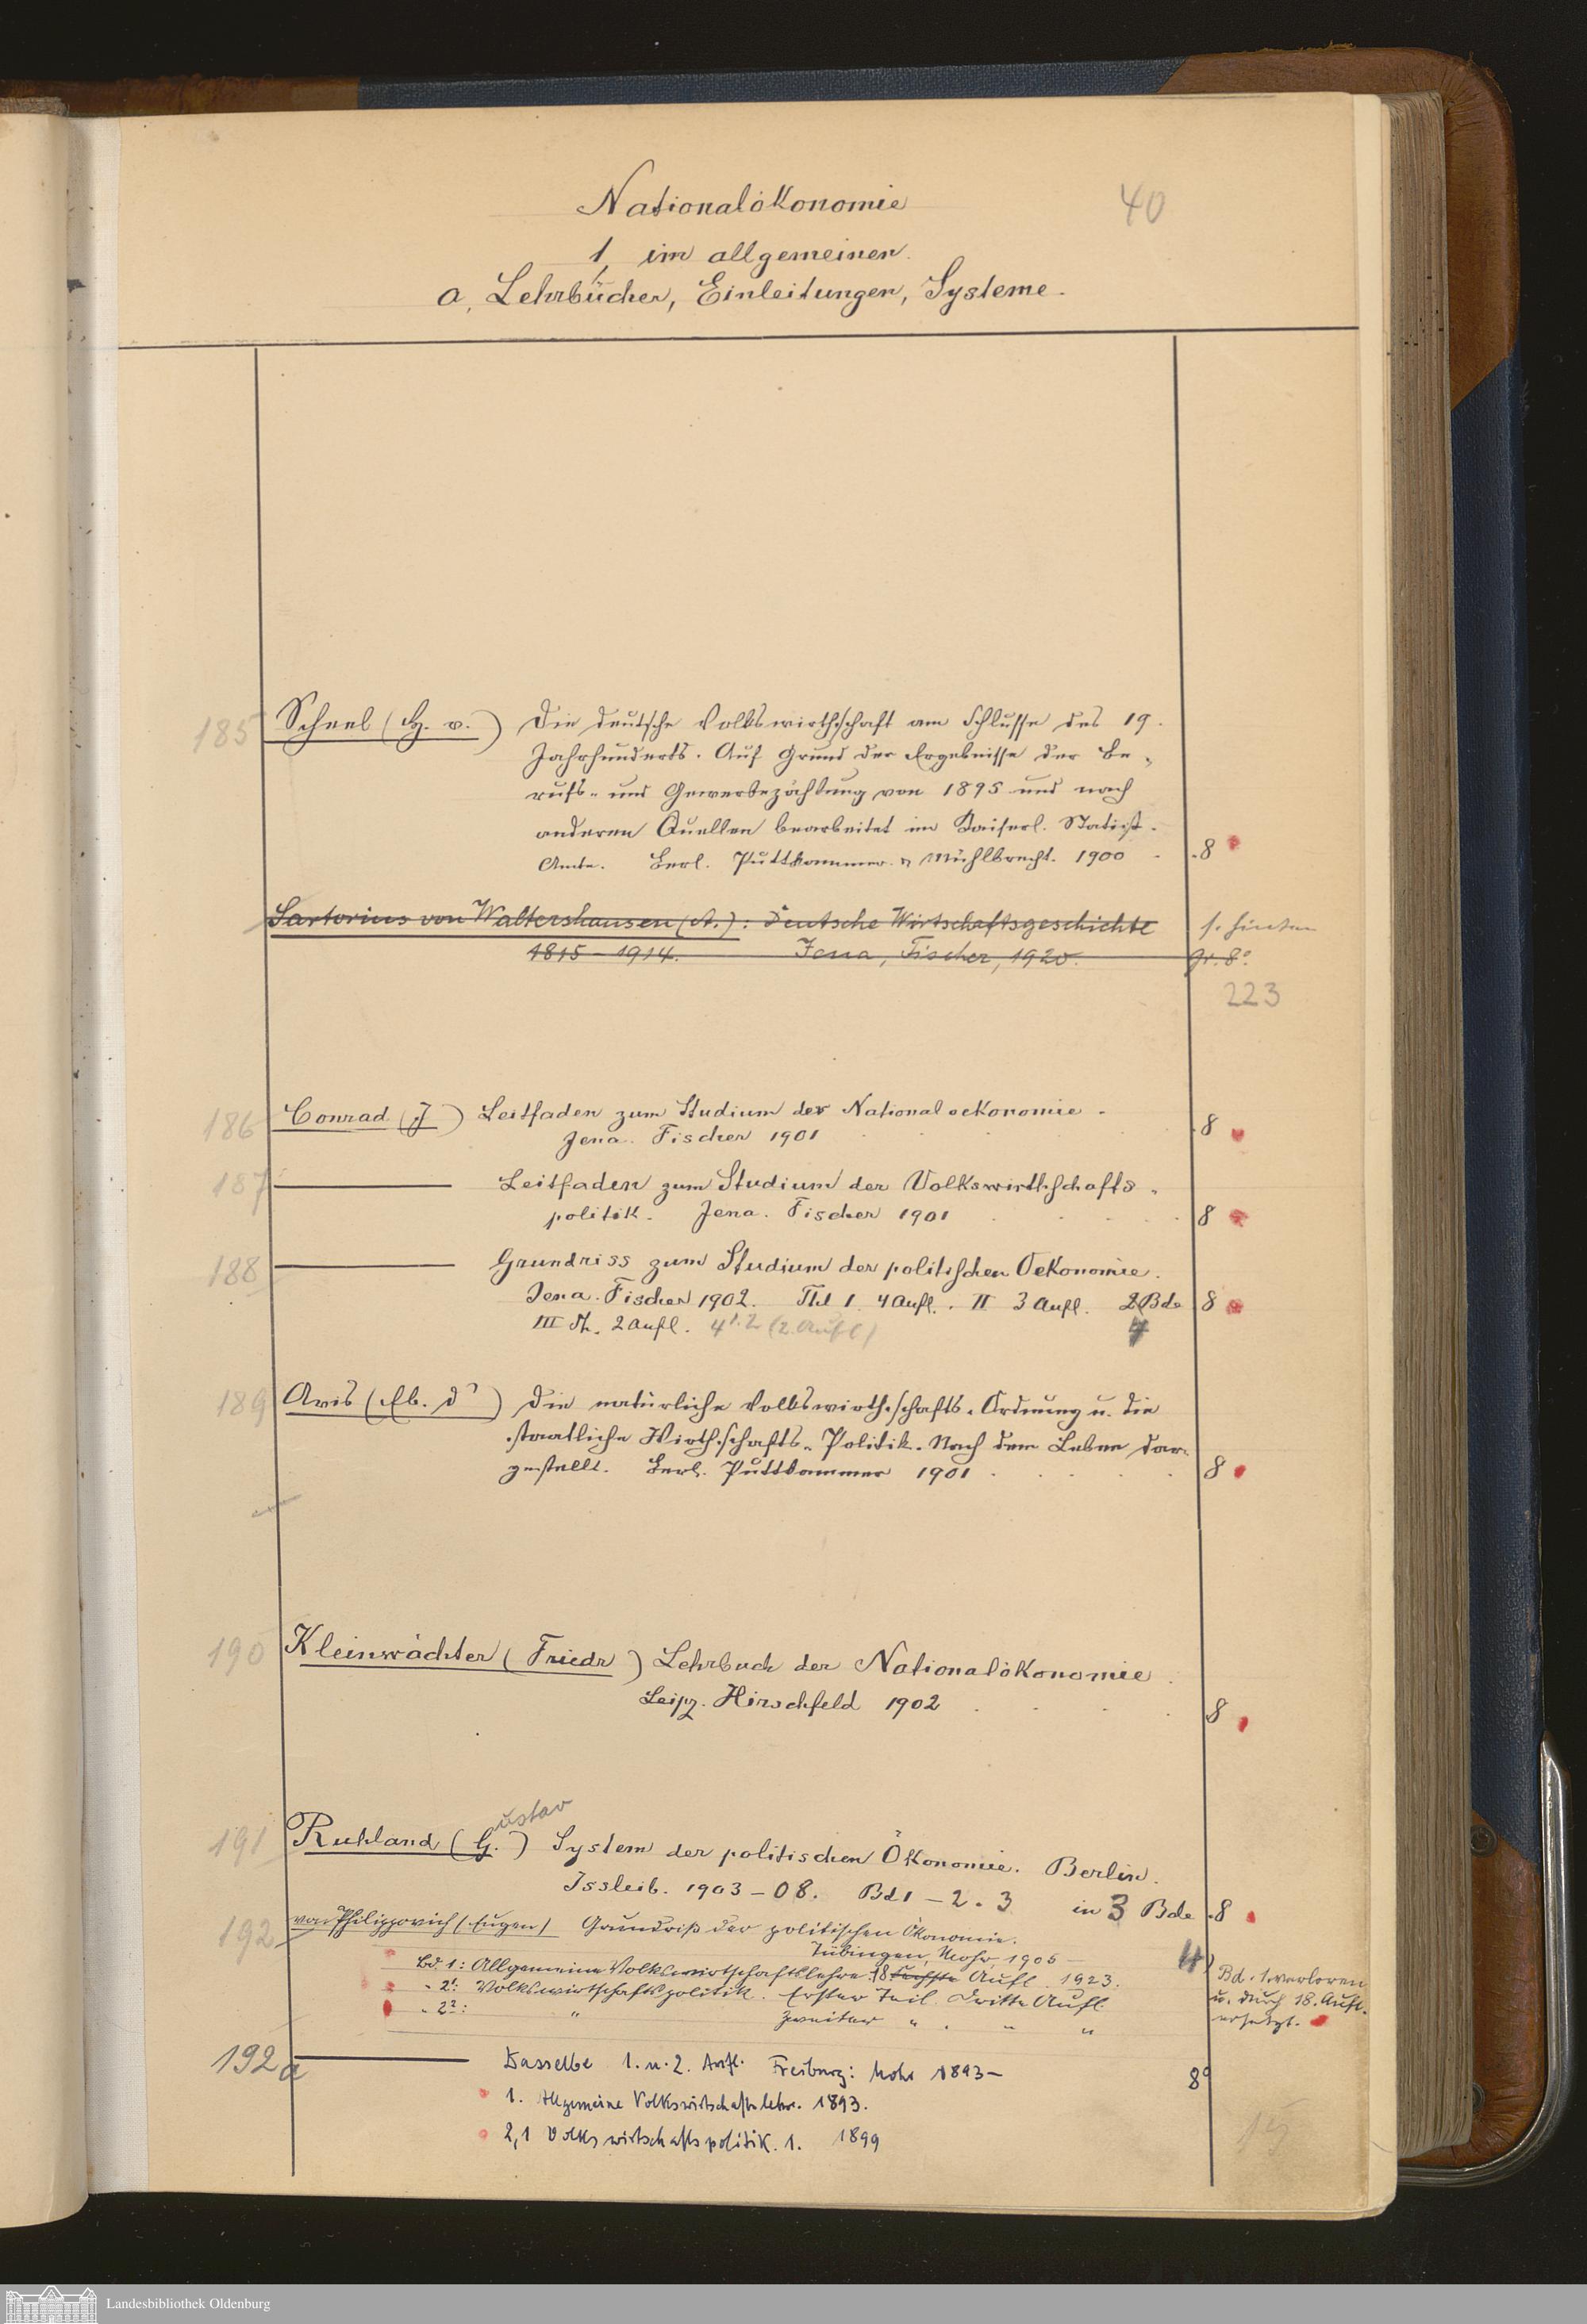 40
Nationalökonomie
1, im allgemeinen.
a, Lehrbücher, Einleitungen, Systeme.
185 Scheel (H. v.) Die deutsche Volkswirthschaft am Schlusse des 19.
Jahrhunderts. Auf Grund der Ergebnisse der Be-
rufs- und Gewerbezählung von 1895 und nach
anderen Quellen bearbeitet im Kaiserl. Statist.
Amte. Berl. Puttkammer & Mühlbrecht. 1900 8
Sartorius von Waltershausen (A.): Deutsche Wirtschaftsgeschichte s. hinten
1815-1914. Jena, Fischer, 1920. gr. 8°.
223
186 Conrad (J) Leitfaden zum Studium der Nationaloekonomie.
Jena. Fischer 1901 8
187 Leitfaden zum Studium der Volkswirthschafts-
politik. Jena. Fischer 1901 8
188 Grundriss zum Studium der politischen Oekonomie.
Jena. Fischer 1902. Thl 1. 4 Aufl. II 3 Aufl. 2 Bde 8
III Th. 2 Aufl. 4 1.2 (2. Aufl) 4
189 Avis (Eb. d') Die natürliche Volkswirthschafts-Ordnung u. die
staatliche Wirthschafts-Politik. Nach dem Leben dar-
gestellt. Berl. Puttkammer 1901 8
190 Kleinwächter (Friedr) Lehrbuch der Nationalökonomie
Leipz. Hirschfeld 1902 8
191 Ruhland (Gustav) System der politischen Ökonomie. Berlin.
Issleib. 1903-08. Bd 1-2. 3 in 3 Bde 8
192 von Philippovich (Eugen) Grundriß der politischen Ökonomie.
Tübingen, Mohr, 1905-
Bd. 1: Allgemeine Volkswirtschaftslehre. 18 Aufl. 1923. Bd. 1 verloren
" 2¹: Volkswirtschaftspolitik. Erster Teil. Dritte Aufl. u. durch 18. Aufl.
" 2²: " Zweiter " " " ersetzt.
192a Dasselbe 1. u. 2. Aufl. Freiburg: Mohr 1893- 8°
1. Allgemeine Volkswirtschaftslehre. 1893.
2,1 Volkswirtschaftspolitik. 1. 1899
Landesbibliothek Oldenburg